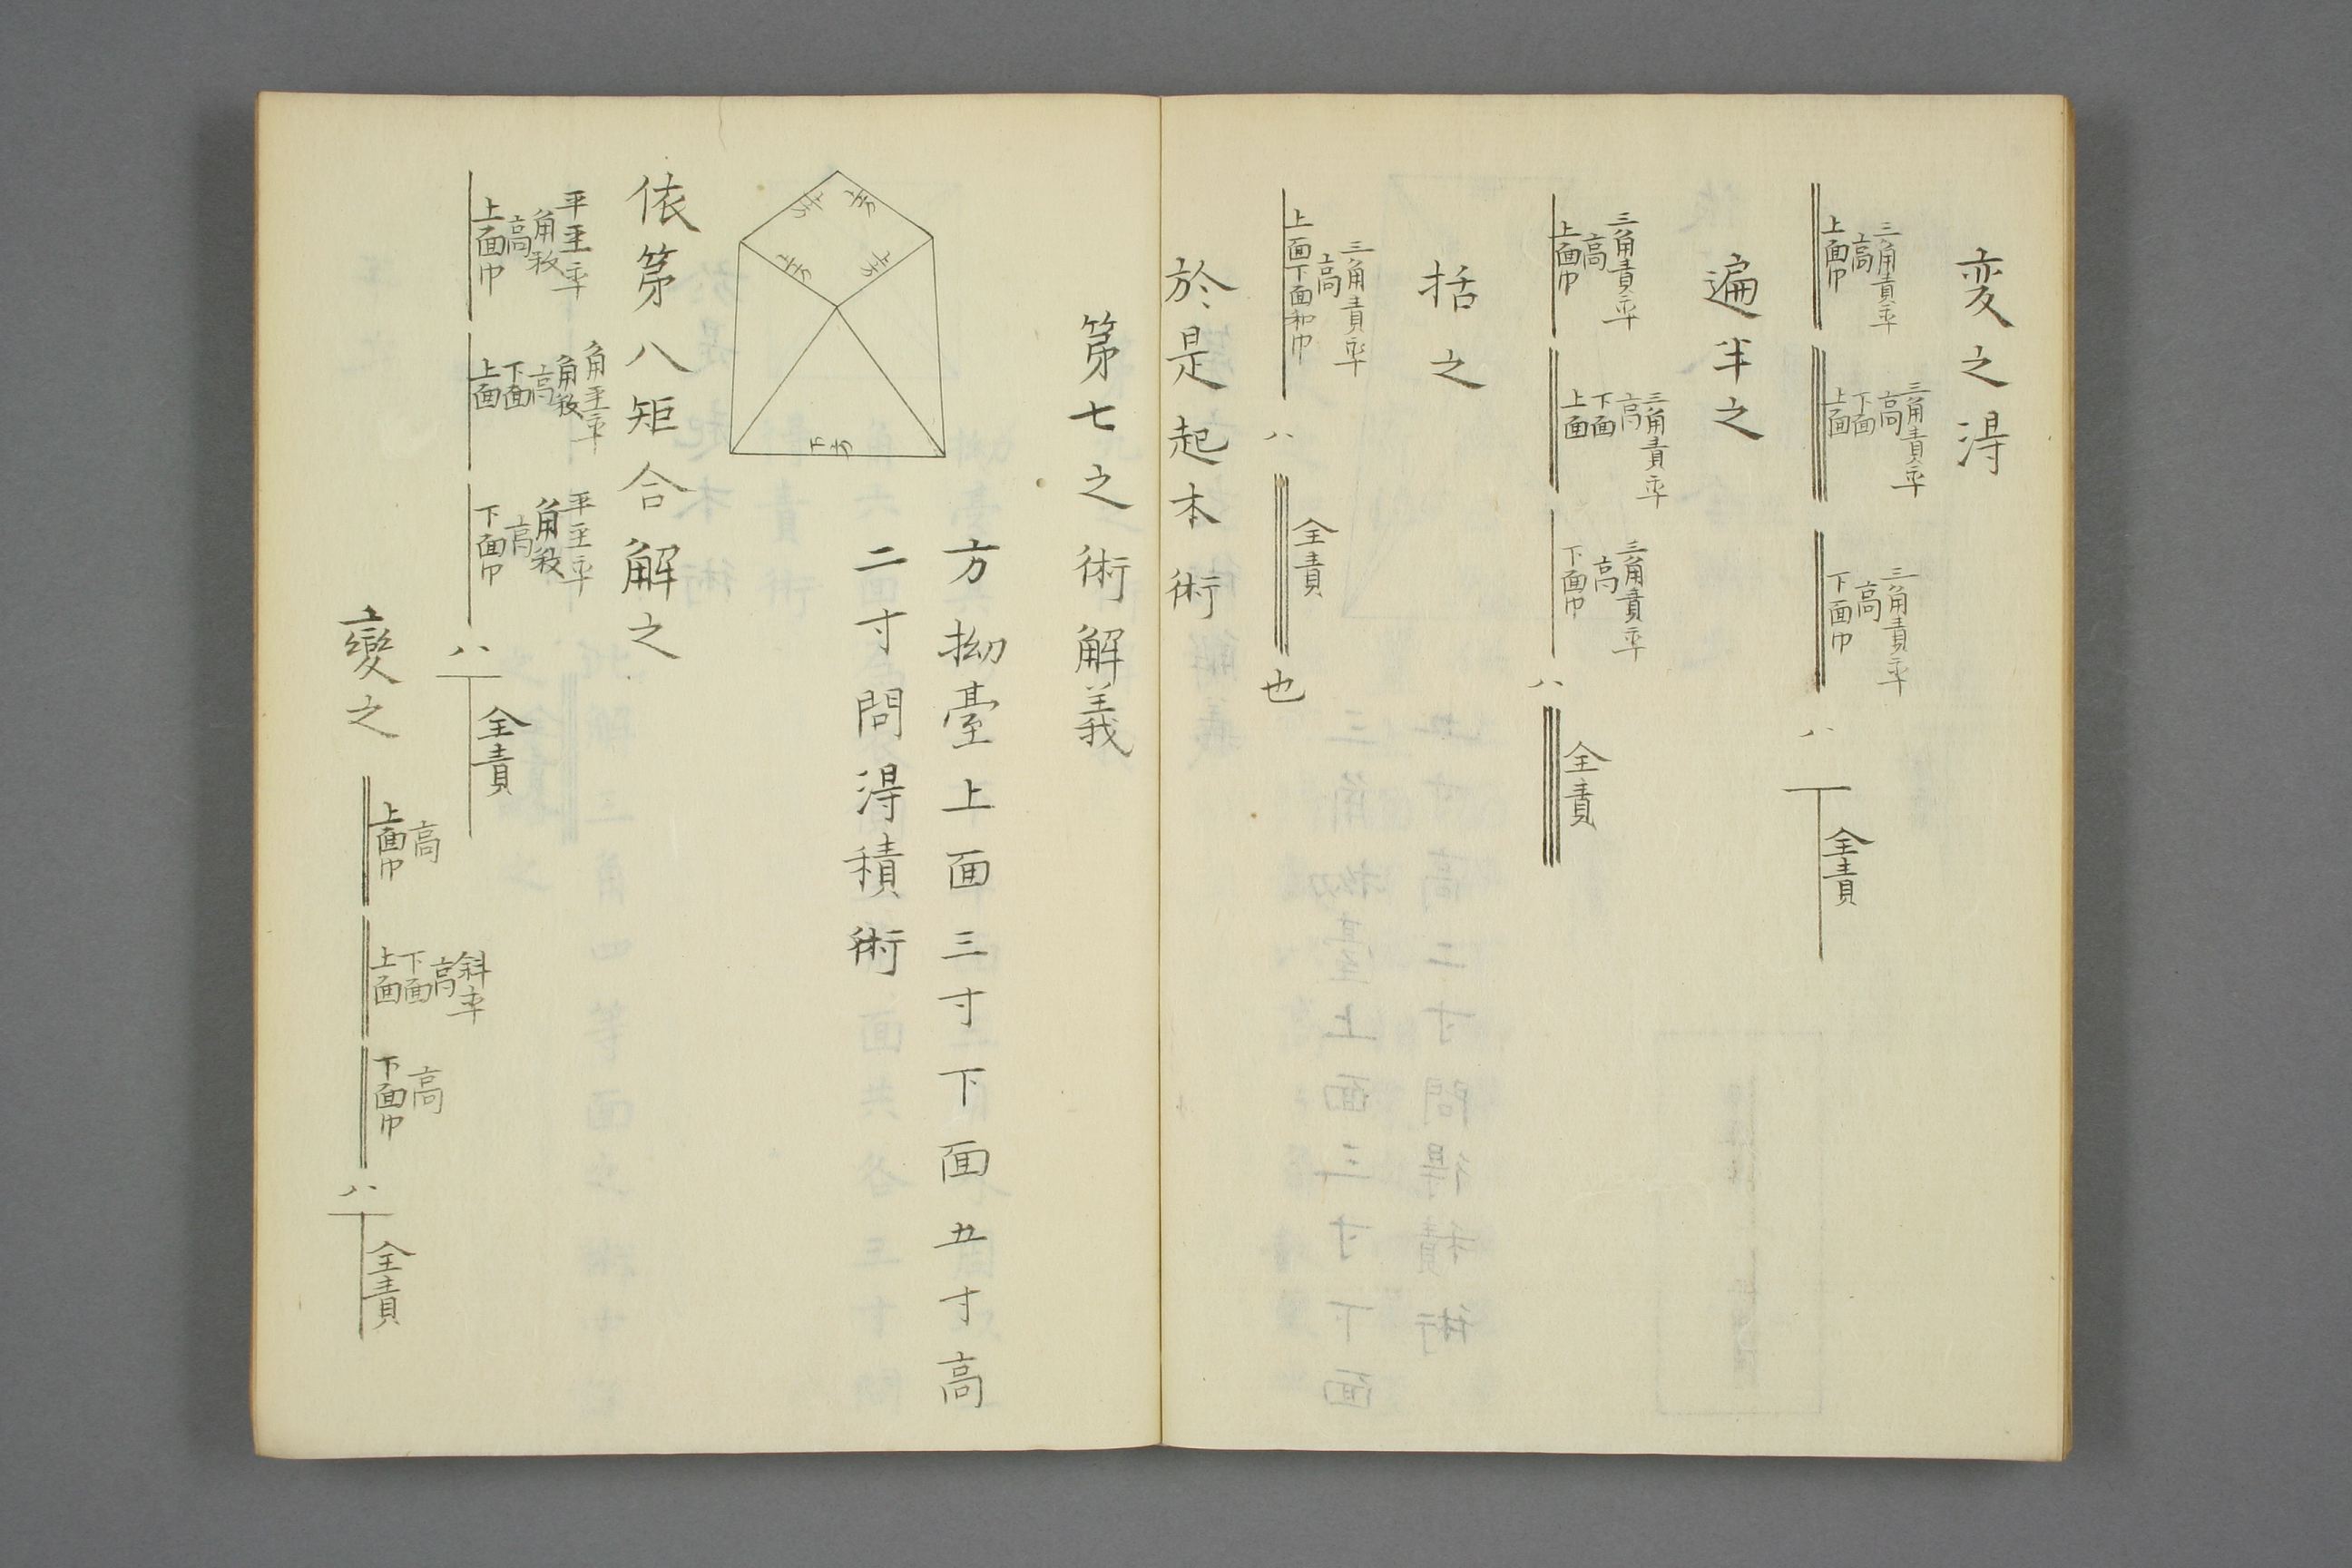 変之得
三角責率 高 上面巾
三角責率 高 下面 上面
三角責率 高 下面巾
全責
遍半之
三角責率 高 上面巾
三角責率 高 下面 上面
三角責率 高 下面巾
全責
括之
三角責率 高 上面下面和巾
全責
也
於是起本術
第七之術解義
方拗臺上面三寸下面五寸高
二寸問得積術
上方
上方
上方
上方
下方
依第八矩合解之
高 上面巾
高 下面 上面
高 下面巾
全責
変之
高 上面巾
斜率 高 下面 上面
高 下面巾
全責